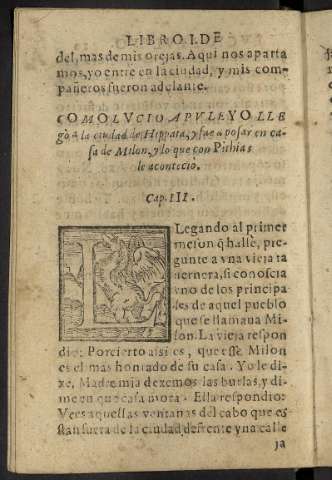 LIBRO I. DE
del, mas de mis orejas. Aqui nos aparta
mos, yo entre en la ciudad, y mis com-
pañeros fueron adelante.
COMO LVCIO APVLEYO LLE
gò à la ciudad de Hippata, y fue a posar en ca-
sa de Milon, y lo que con Pithias
le acontecio.
Cap. III.
LLegando àl primer
meson q̃ hallè, pre-
gunte a vna vieja ta
uernera, si conoscia
vno de los principa-
les de aquel pueblo
que se llamaua Mi-
lon. La vieja respon
dio: Por cierto alsi es, que esse Milon
es el mas honrado de su casa. Yo le di-
xe, Madre mia dexemos las burlas, y di-
me en que casa mora. Ella respondio:
Vees aquellas ventanas del cabo que es
stan fuera de la ciudad defrente vna calle
ja